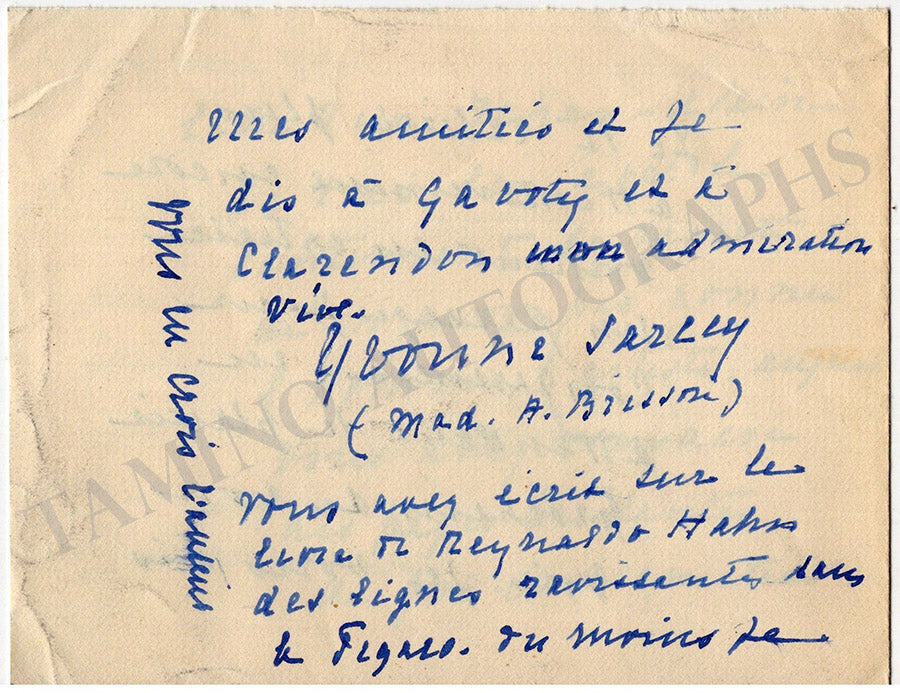 mes amitiés et je
dis à Gavoty et à
Clarendon mon admiration
vive.
Yvonne Sarcey
(Mad. A. Brisson)
Vous avez écrit sur le
livre de Reynaldo Hahn
des lignes ravissantes dans
le Figaro. Du moins je
vous en crois l'auteur
TAMINO AUTOGRAPHS